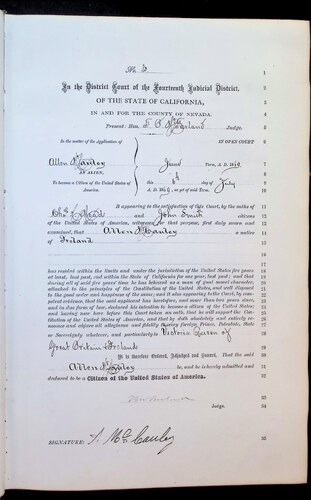 In the District Court of the Fourteenth Judicial District,
OF THE STATE OF CALIFORNIA,
IN AND FOR THE COUNTY OF NEVADA.
Present: Hon. Judge.
In the matter of the Application of IN OPEN COURT
Allen McCauley Term, A. D. 18
AN ALIEN, this 6th day of July
To become a Citizen of the United States of America. A. D. 18 , as yet of said Term.
It appearing to the satisfaction of this Court, by the oaths of
and John Smith citizens
of the United States of America, witnesses for that purpose, first duly sworn and
examined, that Allen McCauley a native
of Ireland
has resided within the limits and under the jurisdiction of the United States five years
at least, last past, and within the State of California for one year, last past; and that
during all of said five years' time he has behaved as a man of good moral character,
attached to the principles of the Constitution of the United States, and well disposed
to the good order and happiness of the same; and it also appearing to the Court, by com-
petent evidence, that the said applicant has heretofore, and more than two years since,
and in due form of law, declared his intention to become a citizen of the United States;
and having now here before this Court taken an oath, that he will support the Consti-
tution of the United States of America, and that he doth absolutely and entirely re-
nounce and abjure all allegiance and fidelity to every foreign Prince, Potentate, State
or Sovereignty whatever, and particularly to Victoria Queen of
Great Britain & Ireland
It is therefore Ordered, Adjudged and Decreed, That the said
Allen McCauley be, and he is hereby admitted and
declared to be a Citizen of the United States of America.
Judge.
SIGNATURE: A. McCauley
1
2
3
4
5
6
7
8
9
10
11
12
13
14
15
16
17
18
19
20
21
22
23
24
25
26
27
28
29
30
31
32
33
34
35